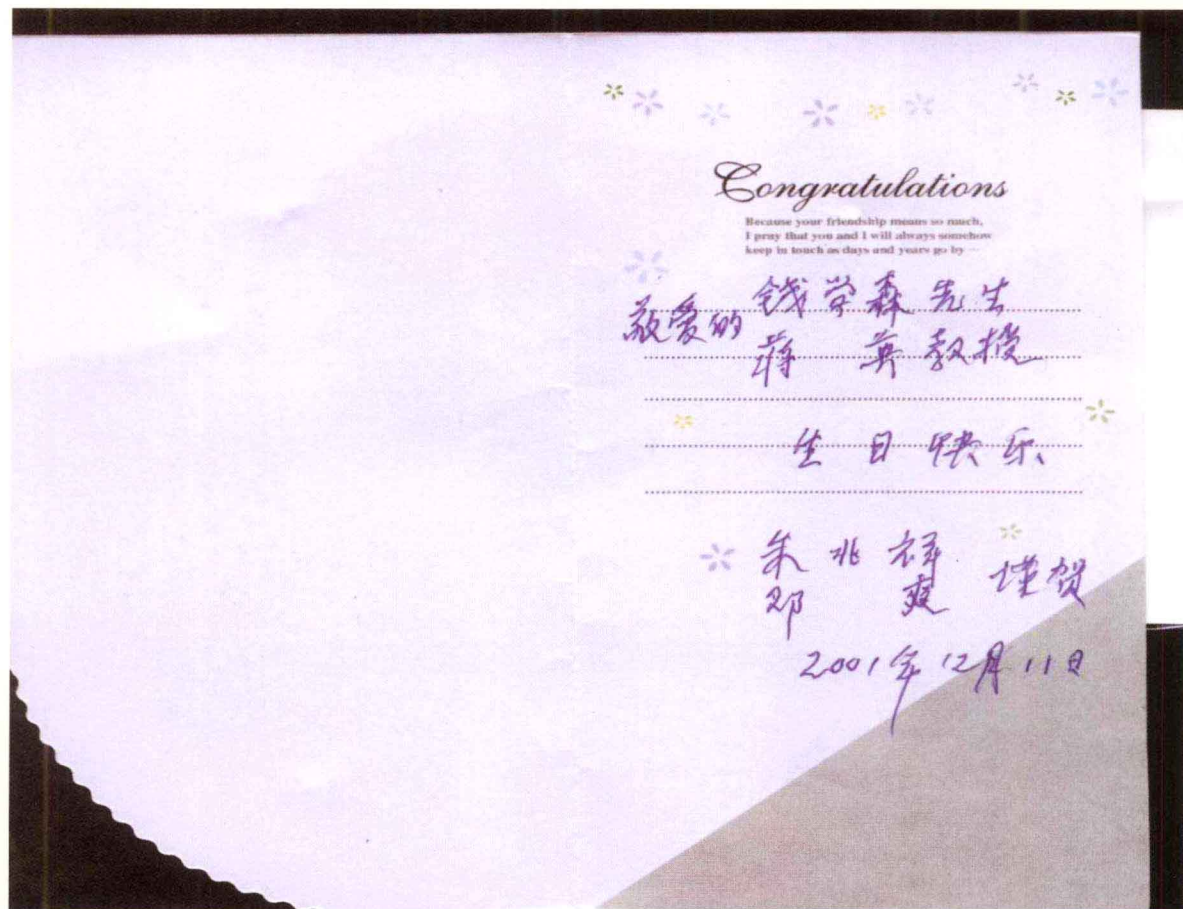 Congratulations
Because your friendship means so much,
I pray that you and I will always somehow
keep in touch as days and years go by —
敬爱的 钱学森先生
蒋英教授
生日快乐
朱兆祥
邓爽 谨贺
2001年12月11日